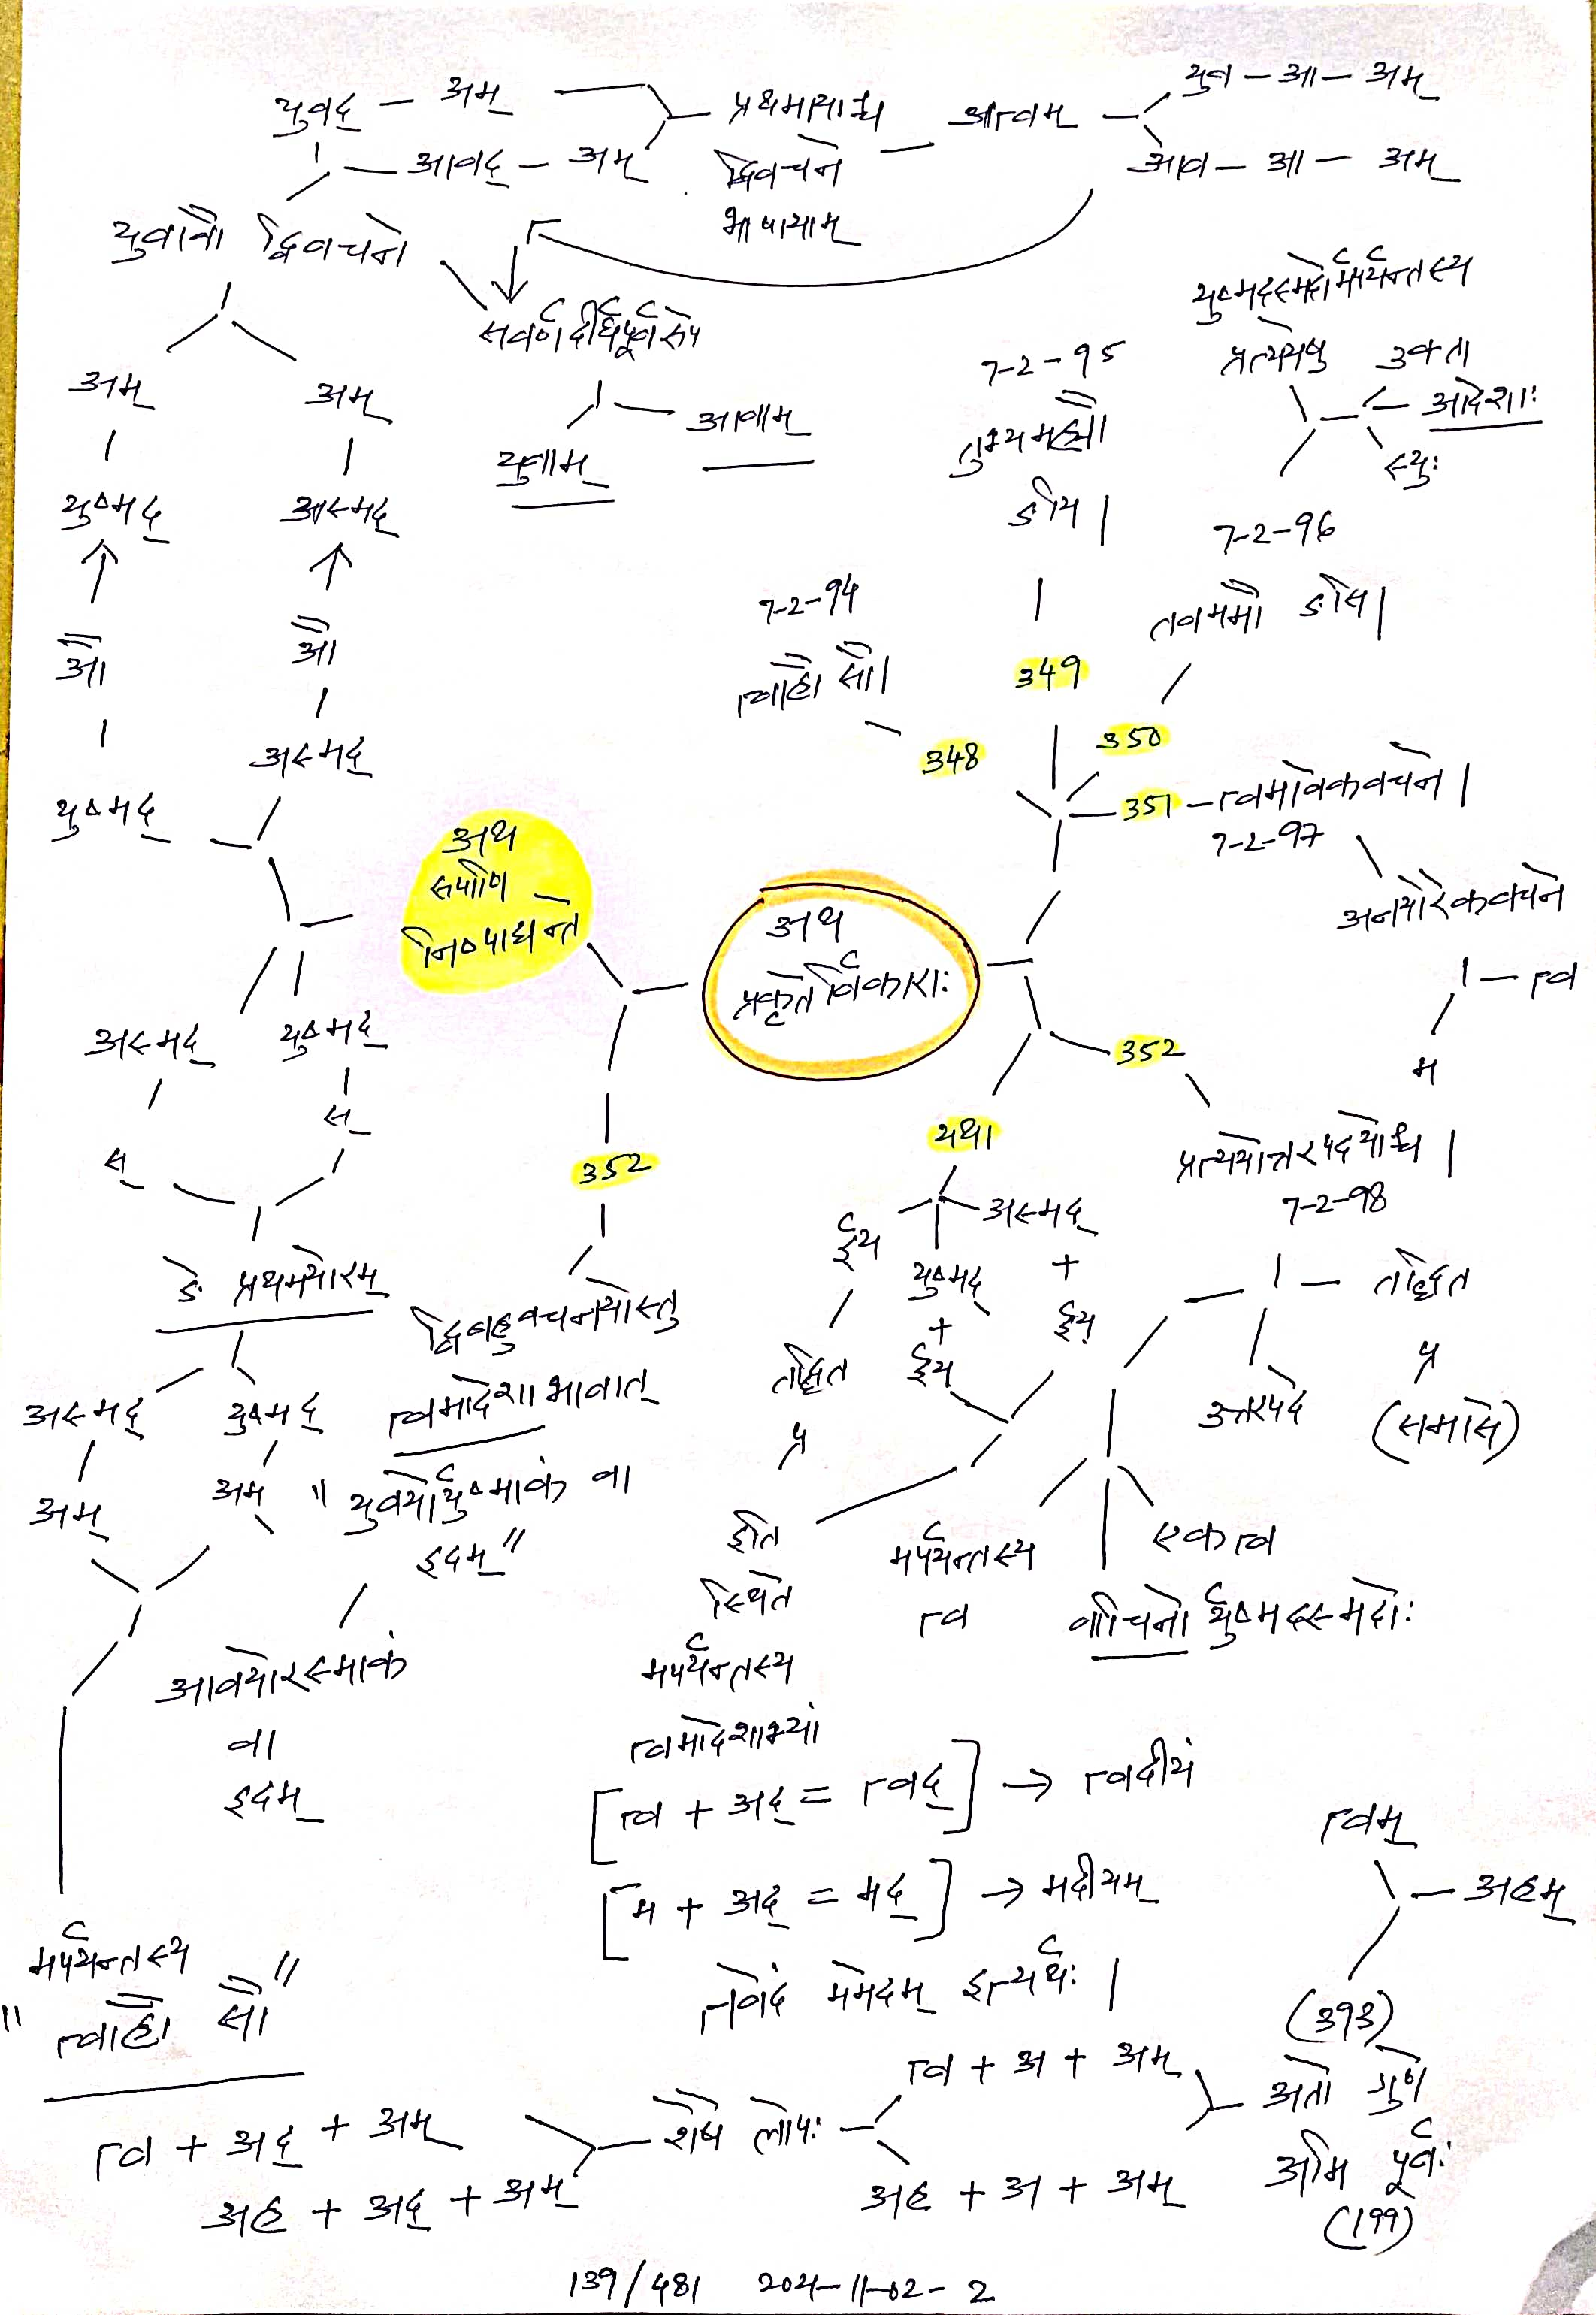 युवद् – अम्
– आवद् – अम्
प्रथमायाश्च
द्विवचने
भाषायाम्
– आत्वम्
युव – आ – अम्
आव – आ – अम्
युवावौ द्विवचने
सवर्णदीर्घपूर्वरूपे
युवाम्
आवाम्
अम्
अम्
युष्मद्
अस्मद्
औ
औ
अस्मद्
युष्मद्
7-2-95
तुभ्यमह्यौ
ङयि |
349
युष्मदस्मदोर्मपर्यन्तस्य
उक्ता
आदेशाः
स्युः
7-2-96
तवममौ ङसि |
350
7-2-94
त्वाहौ सौ |
348
351 – त्वमावेकवचने |
7-2-97
अनयोरेकवचने
त्व
म
अथ
रूपाणि
निष्पाद्यन्ते
अथ
प्रकृतेर्विकाराः
352
प्रत्ययोत्तरपदयोश्च |
7-2-98
तद्धित
प्र
(समासे)
उत्तरपदे
एकत्व
वाचिनो र्युष्मदस्मदोः
मपर्यन्तस्य
त्व
यथा
अस्मद्
+
ईय
युष्मद्
+
ईय
ईय
तद्धित
प्र
इति
स्थिते
मपर्यन्तस्य
त्वमादेशाभ्यां
[त्व + अद् = त्वद्] → त्वदीयं
[म + अद् = मद्] → मदीयम्
तवेदं ममेदम् इत्यर्थः |
352
द्विबहुवचनयोस्तु
त्वमादेशाभावात्
" युवयोर्युष्माकं वा
इदम् "
आवयोरस्माकं
वा
इदम्
अस्मद्
युष्मद्
स्
स्
ङे प्रथमयोरम्
अस्मद्
युष्मद्
अम्
अम्
मपर्यन्तस्य
" त्वाहौ सौ "
त्व + अद् + अम्
अह + अद् + अम्
शेषे लोपः
त्व + अ + अम्
अह + अ + अम्
अतो गुणे
अमि पूर्वः
(199)
(393)
त्वम्
– अहम्
139/481 2021-11-02-2